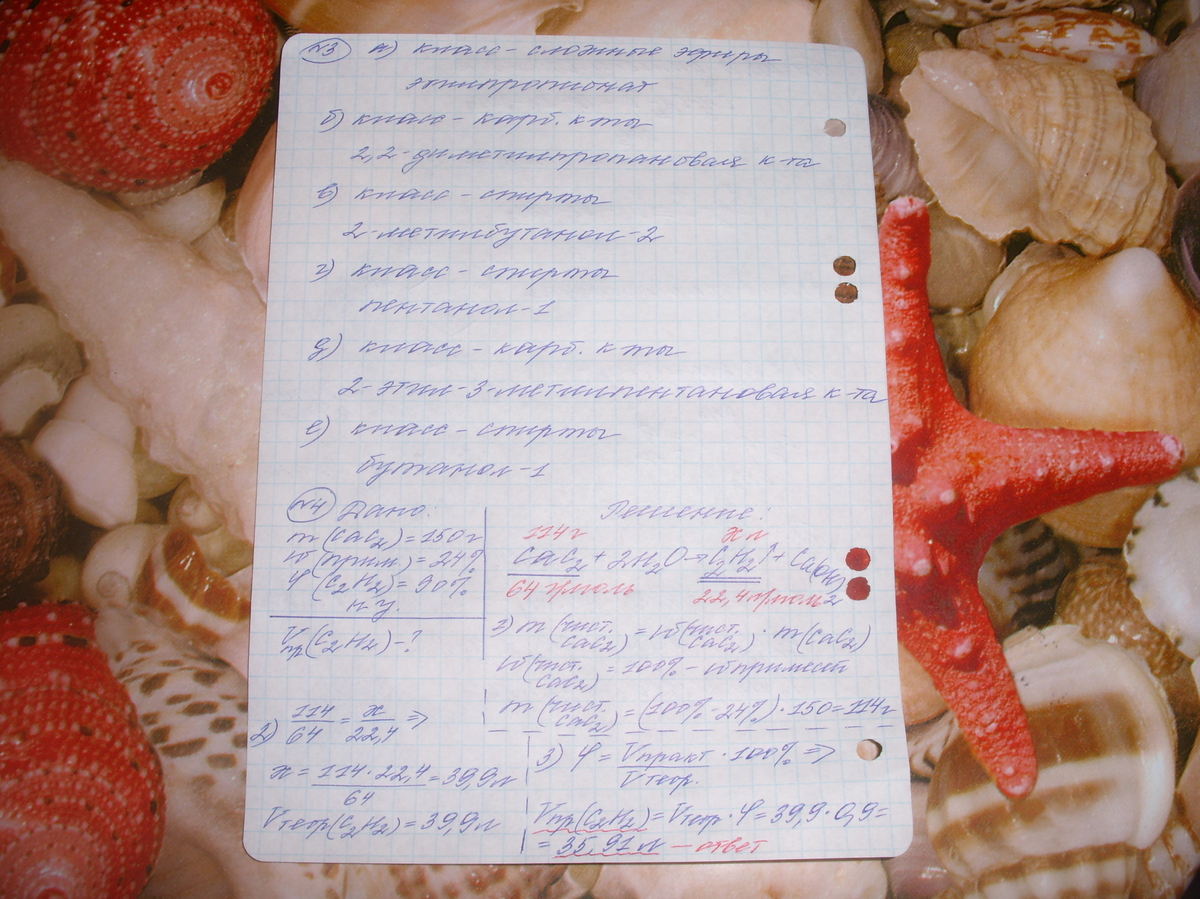 №3 а) класс - сложные эфиры
этилпропионат
б) класс - карб. к-ты
2,2-диметилпропановая к-та
в) класс - спирты
2-метилбутанол-2
г) класс - спирты
пентанол-1
д) класс - карб. к-ты
2-этил-3-метилпентановая к-та
е) класс - спирты
бутанол-1
№4 Дано:
m(CaC2)=150г
ω(прим.)=24%
φ(C2H2)=90%
н.у.
Vпр(C2H2)-?
Решение:
114г х л
CaC2 + 2H2O → C2H2↑ + Ca(OH)2
64 г/моль 22,4 л/моль
3) m(чист. CaC2)=ω(чист. CaC2)·m(CaC2)
ω(чист. CaC2)=100%-ω примесей
m(чист. CaC2)=(100%-24%)·150=114г
2) 114/64 = x/22,4 ⇒
x = 114·22,4/64 = 39,9л
Vтеор(C2H2)=39,9л
3) φ = Vпракт/Vтеор. ·100% ⇒
Vпр(C2H2)=Vтеор·φ=39,9·0,9=
=35,91 л - ответ